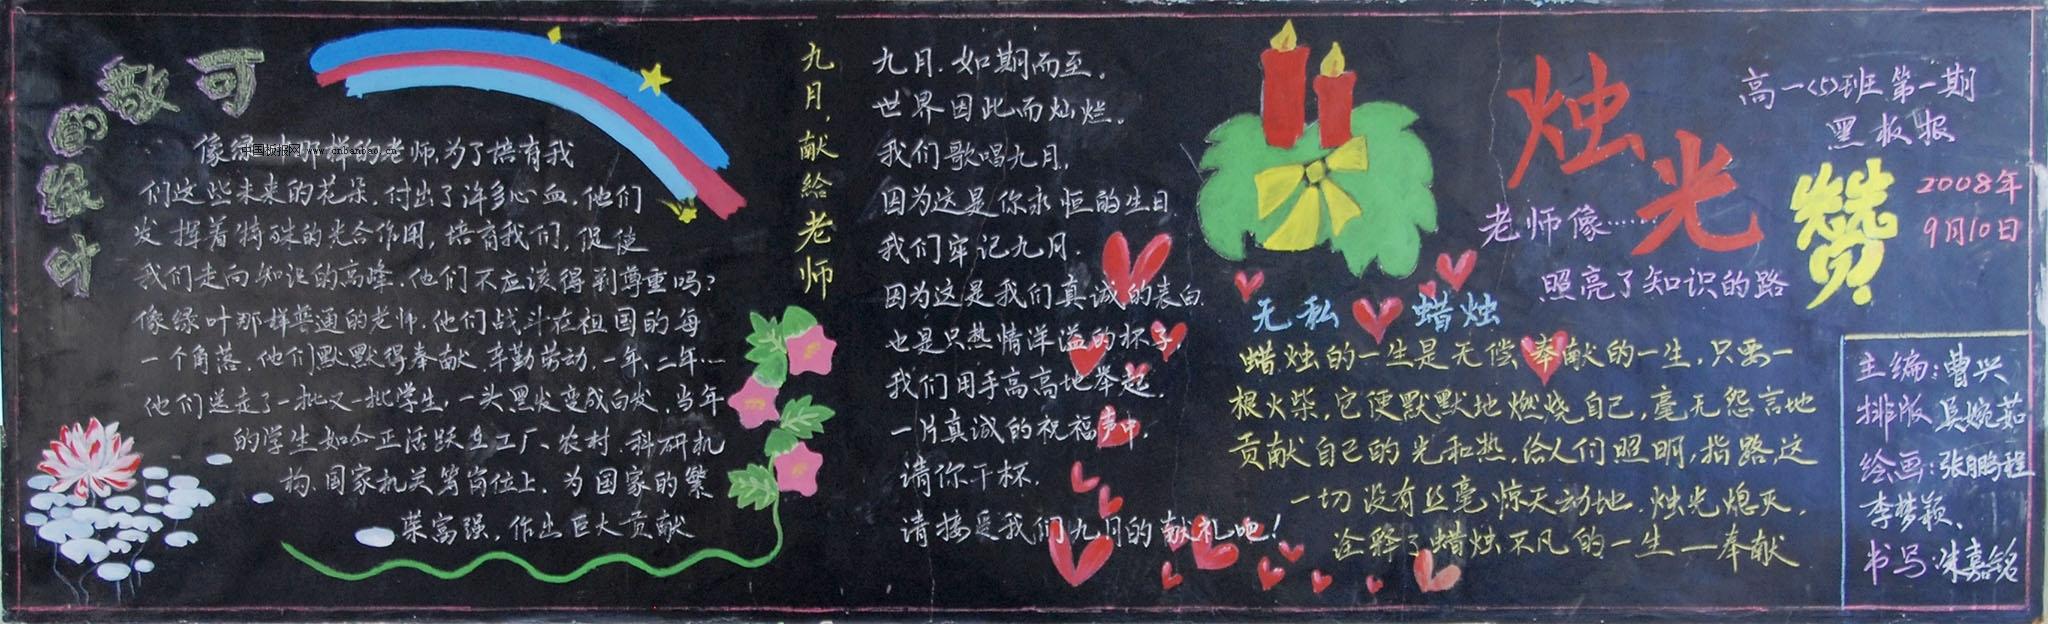 可敬的绿叶
像绿叶那样的老师,为了培育我
们这些未来的花朵,付出了许多心血,他们
发挥着特殊的光合作用,培育我们,促使
我们走向知识的高峰,他们不应该得到尊重吗?
像绿叶那样普通的老师,他们战斗在祖国的每
一个角落,他们默默得奉献,辛勤劳动,一年、二年…
他们送走了一批又一批学生,一头黑发变成白发,当年
的学生如今正活跃在工厂、农村、科研机
构、国家机关等岗位上,为国家的繁
荣富强,作出巨大贡献
中国板报网 www.cnbanbao.cn
九月,献给老师
九月,如期而至。
世界因此而灿烂。
我们歌唱九月,
因为这是你永恒的生日.
我们牢记九月.
因为这是我们真诚的表白.
也是只热情洋溢的杯子,
我们用手高高地举起,
一片真诚的祝福声中,
请你干杯.
请接受我们九月的献礼吧!
烛光赞
老师像……
照亮了知识的路
高一(5)班第一期
黑板报
2008年
9月10日
无私 蜡烛
蜡烛的一生是无偿奉献的一生,只要一
根火柴,它便默默地燃烧自己,毫无怨言地
贡献自己的光和热,给人们照明,指路,这
一切没有丝毫惊天动地.烛光熄灭,
诠释了蜡烛不凡的一生—奉献
主编:曹兴
排版 吴婉茹
绘画:张鹏程
李梦颖、
书写:朱嘉铭